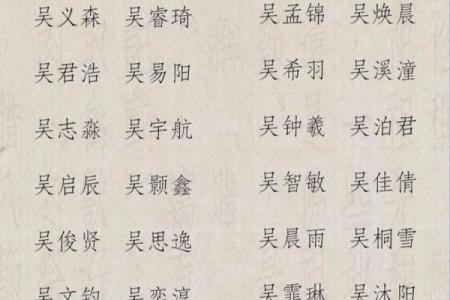 吴义森 吴睿琦 吴孟锦 吴焕晨
吴君浩 吴易阳 吴希羽 吴溪潼
吴志淼 吴宇航 吴钟羲 吴泊君
吴启辰 吴颢鑫 吴智敏 吴佳倩
吴俊贤 吴思逸 吴晨雨 吴桐雪
吴文钧 吴奕淳 吴霏琳 吴沐阳